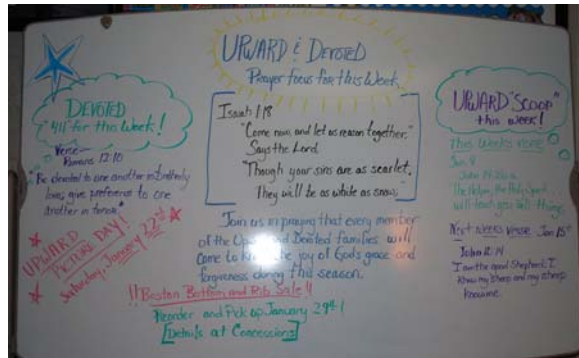 UPWARD & DEVOTED
Prayer focus for this Week
DEVOTED
"411" for this Week!
Verse—
Romans 12:10
"Be devoted to one another in brotherly
love; give preference to one
another in honor."
UPWARD
PICTURE DAY!
Saturday, January 22nd
Isaiah 1:18
"Come now, and let us reason together,"
Says the Lord
"Though your sins are as scarlet,
They will be as white as snow;
Join us in praying that every member
of the Upward and Devoted families will
come to know the joy of God's grace and
forgiveness during this season.
!!Boston Button and Rib Sale!!
Preorder and Pick up January 29th!
[Details at Concessions]
UPWARD "SCOOP"
this week!
This weeks verse
Jan. 8
John 14:26a
The Helper, the Holy Spirit
will teach you all things.
Next weeks verse Jan 15th
John 10:14
I am the good Shepherd. I
Know my sheep and my sheep
Know me.